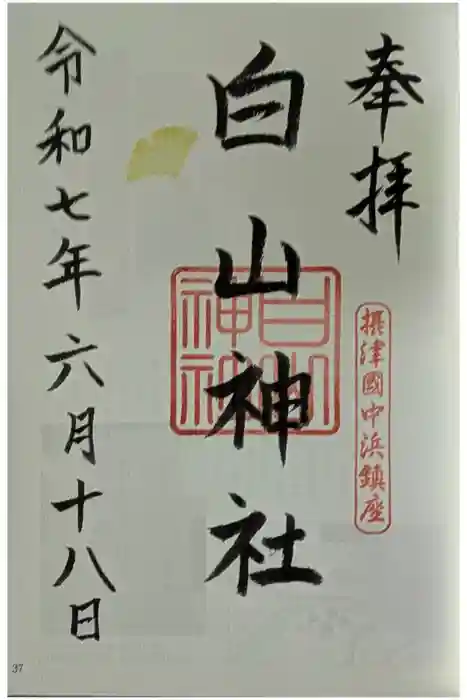 奉拝
摂津國中浜鎮座
白山神社
白山神社
令和七年六月十八日
37